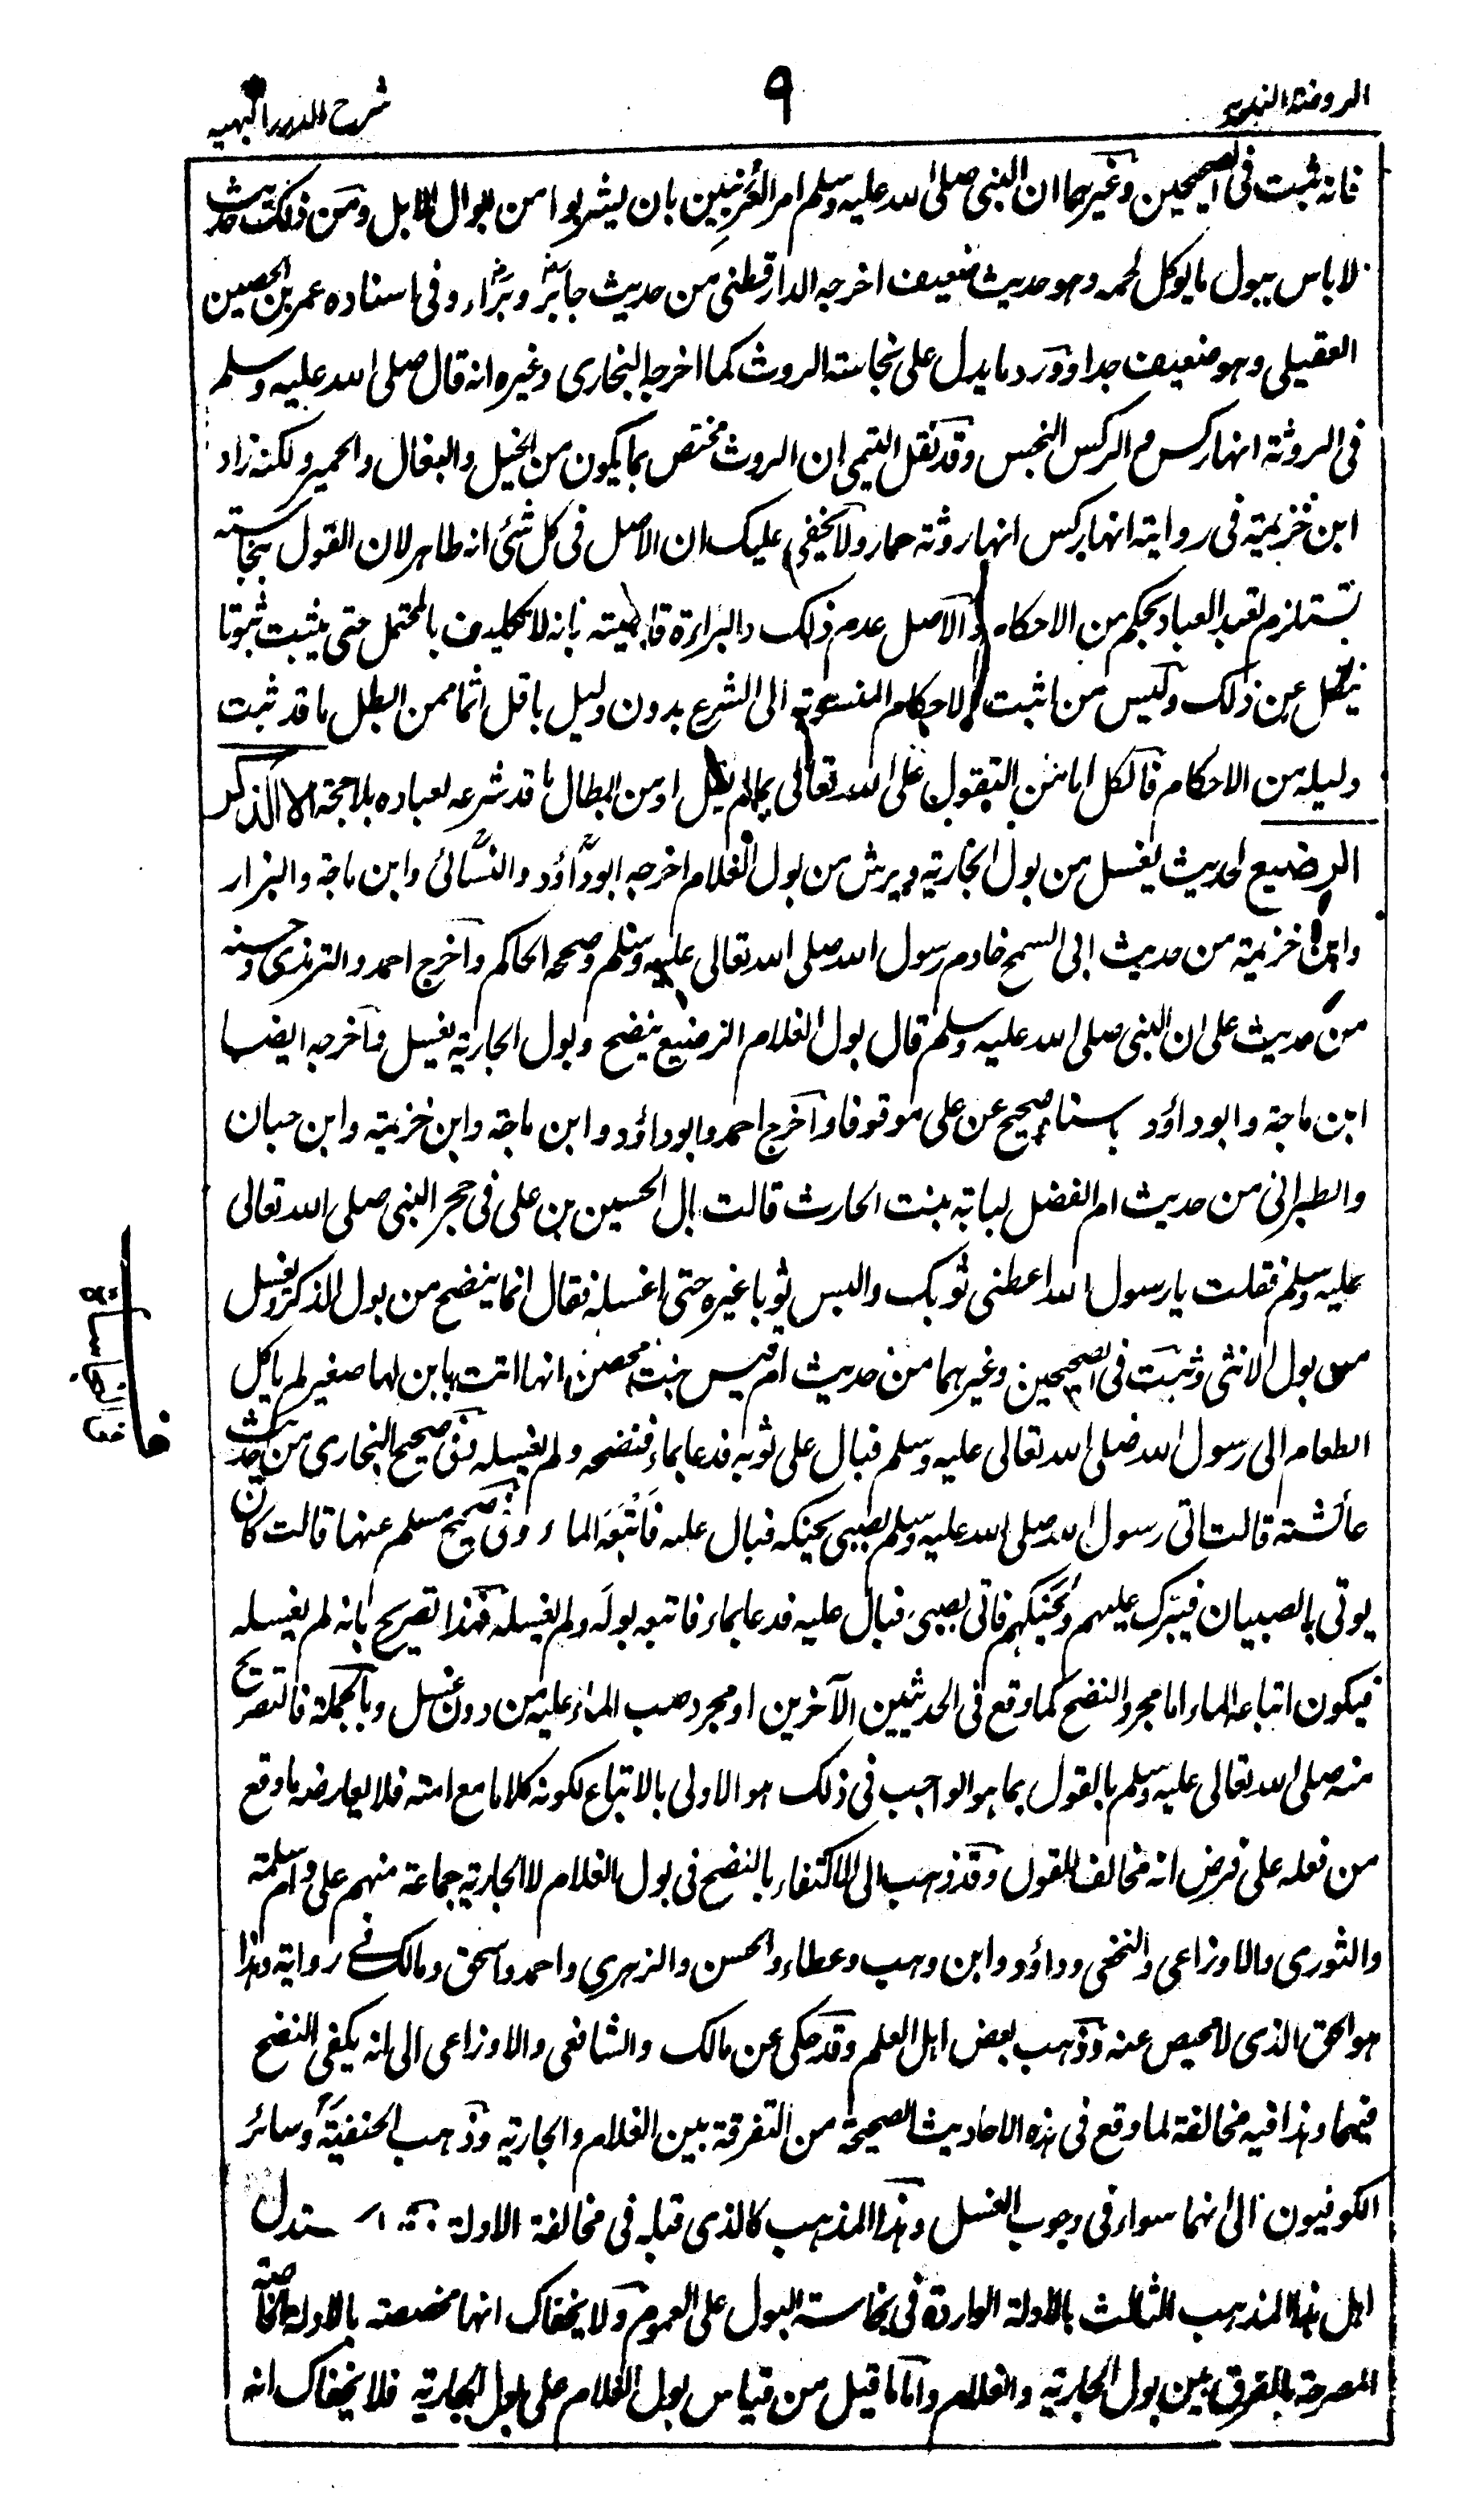 الروضة الندية
٩
شرح الدرر البهية
فانه ثبت فى الصحيحين وغيرهما ان النبى صلى الله عليه وسلم امر العُرَنيِّين بان يشربوا من ابوال الابل ومن ذلك حديث
لا باس ببول ما يوكل لحمه وهو حديث ضعيف اخرجه الدارقطنى من حديث جابر وبراء وفى اسناده عمر بن الحصين
العقيلى وهو ضعيف جدا وورد ما يدل على نجاسة الروث كما اخرجه البخارى وغيره انه قال صلى الله عليه وسلم
فى الروثة انها ركس والركس النجس وقد نقل التيمى ان الروث مختص بما يكون من الخيل والبغال والحمير ولكنه زاد
ابن خزيمة فى رواية انها ركس انها روثة حمار ولا يخفى عليك ان الاصل فى كل شئ انه طاهر لان القول بنجاسته
يستلزم تعبد العباد بحكم من الاحكام والاصل عدم ذلك والبراءة قاضية بانه لا تكليف بالمحتمل حتى يثبت ثبوتا
ينقل عن ذلك وليس من اثبت الاحكام المنسوبة الى الشرع بدون دليل باقل اثما ممن ابطل ما قد ثبت
دليله من الاحكام فالكل اما من التقول على الله تعالى بما لم يقل او من ابطال ما قد شرعه لعباده بلا حجة الا الذكر
الرضيع لحديث يغسل من بول الجارية ويرش من بول الغلام اخرجه ابو داؤد والنسائى وابن ماجة والبزار
وابن خزيمة من حديث ابى السمح خادم رسول الله صلى الله تعالى عليه وسلم وصححه الحاكم واخرج احمد والترمذى وحسنه
من حديث على ان النبى صلى الله عليه وسلم قال بول الغلام الرضيع ينضح وبول الجارية يغسل واخرجه ايضا
ابن ماجة وابو داؤد باسناد صحيح عن على موقوفا واخرج احمد وابو داؤد وابن ماجة وابن خزيمة وابن حبان
والطبرانى من حديث ام الفضل لبابة بنت الحارث قالت بال الحسين بن على فى حجر النبى صلى الله تعالى
عليه وسلم فقلت يا رسول الله اعطنى ثوبك والبس ثوبا غيره حتى اغسله فقال انما ينضح من بول الذكر ويغسل
من بول الانثى وثبت فى الصحيحين وغيرهما من حديث ام قيس بنت محصن انها اتت بابن لها صغير لم ياكل
الطعام الى رسول الله صلى الله تعالى عليه وسلم فبال على ثوبه فدعا بماء فنضحه ولم يغسله وفى صحيح البخارى من حديث
عائشة قالت اتى رسول الله صلى الله عليه وسلم بصبى يحنكه فبال عليه فَاَتْبَعَه الماء وفى صحيح مسلم عنها قالت كان
يوتى بالصبيان فيبرك عليهم ويُحَنِّكهم فاتى بصبى فبال عليه فدعا بماء فاتبعه بوله ولم يغسله فهذا تصريح بانه لم يغسله
فيكون اتباعه الماء اما مجرد النضح كما وقع فى الحديثين الآخرين او مجرد صب الماء عليه من دون غسل وبالجملة فالتصريح
منه صلى الله تعالى عليه وسلم بالقول بما هو الواجب فى ذلك هو الاولى بالاتباع لكونه كلاما مع امته فلا يعارضه ما وقع
من فعله على فرض انه مخالف للقول وقد ذهب الى الاكتفاء بالنضح فى بول الغلام لا الجارية جماعة منهم على وام سلمة
والثورى والاوزاعى والنخعى وداؤد وابن وهب وعطاء والحسن والزهرى واحمد واسحق ومالك فى رواية وهذا
هو الحق الذى لا محيص عنه وذهب بعض اهل العلم وقد حكى عن مالك والشافعى والاوزاعى الى انه يكفى النضح
فيهما وهذا فيه مخالفة لما وقع فى هذه الاحاديث الصحيحة من التفرقة بين الغلام والجارية وذهب الحنفية وسائر
الكوفيون الى انهما سواء فى وجوب الغسل وهذا المذهب كالذى قبله فى مخالفة الادلة
اهل هذا المذهب الثالث بالادلة الواردة فى نجاسة البول على العموم ولا يخفاك انها مخصصة بالادلة الخاصة
المصرحة بالفرق بين بول الجارية والغلام واما ما قيل من قياس بول الغلام على بول الجارية فلا يخفاك انه